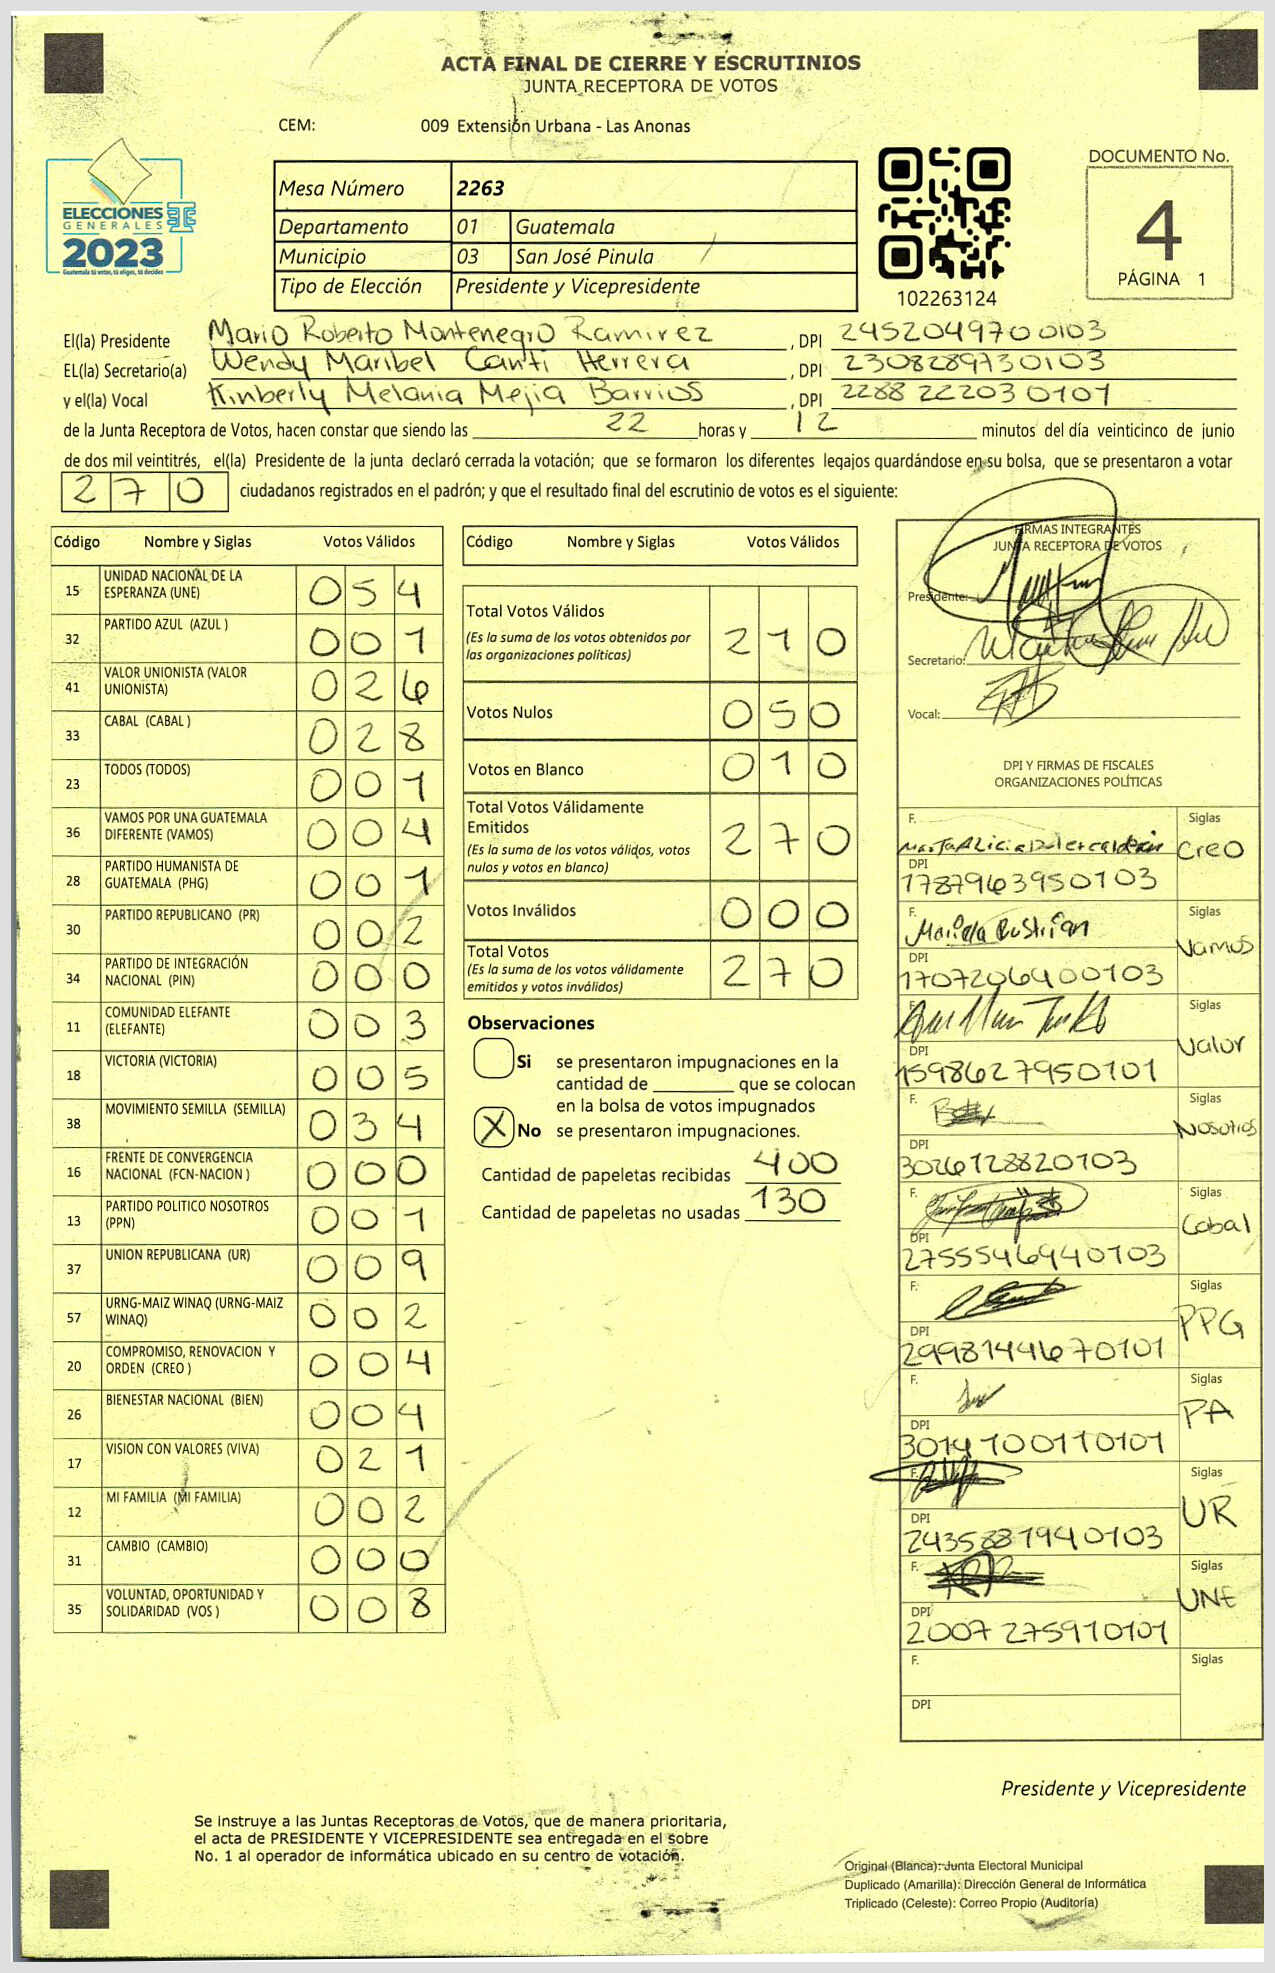 ACTA FINAL DE CIERRE Y ESCRUTINIOS
JUNTA RECEPTORA DE VOTOS
CEM: 009 Extensión Urbana - Las Anonas
DOCUMENTO No.
4
PÁGINA 1
ELECCIONES
GENERALES
2023
Guatemala tú votas, tú eliges, tú decides
Mesa Número 2263
Departamento 01 Guatemala
Municipio 03 San José Pinula
Tipo de Elección Presidente y Vicepresidente
102263124
El(la) Presidente Mario Roberto Montenegro Ramirez, DPI 2452049700103
EL(la) Secretario(a) Wendy Maribel Canti Herrera, DPI 2308289730103
y el(la) Vocal Kinberly Melania Mejia Barrios, DPI 2288222030101
de la Junta Receptora de Votos, hacen constar que siendo las 22 horas y 12 minutos del día veinticinco de junio
de dos mil veintitrés, el(la) Presidente de la junta declaró cerrada la votación; que se formaron los diferentes legajos guardándose en su bolsa, que se presentaron a votar
270 ciudadanos registrados en el padrón; y que el resultado final del escrutinio de votos es el siguiente:
Código Nombre y Siglas Votos Válidos
15 UNIDAD NACIONAL DE LA ESPERANZA (UNE) 054
32 PARTIDO AZUL (AZUL ) 001
41 VALOR UNIONISTA (VALOR UNIONISTA) 026
33 CABAL (CABAL ) 028
23 TODOS (TODOS) 001
36 VAMOS POR UNA GUATEMALA DIFERENTE (VAMOS) 004
28 PARTIDO HUMANISTA DE GUATEMALA (PHG) 001
30 PARTIDO REPUBLICANO (PR) 002
34 PARTIDO DE INTEGRACIÓN NACIONAL (PIN) 000
11 COMUNIDAD ELEFANTE (ELEFANTE) 003
18 VICTORIA (VICTORIA) 005
38 MOVIMIENTO SEMILLA (SEMILLA) 034
16 FRENTE DE CONVERGENCIA NACIONAL (FCN-NACION ) 000
13 PARTIDO POLITICO NOSOTROS (PPN) 001
37 UNION REPUBLICANA (UR) 009
57 URNG-MAIZ WINAQ (URNG-MAIZ WINAQ) 002
20 COMPROMISO, RENOVACION Y ORDEN (CREO ) 004
26 BIENESTAR NACIONAL (BIEN) 004
17 VISION CON VALORES (VIVA) 021
12 MI FAMILIA (MI FAMILIA) 002
31 CAMBIO (CAMBIO) 000
35 VOLUNTAD, OPORTUNIDAD Y SOLIDARIDAD (VOS ) 008
Código Nombre y Siglas Votos Válidos
Total Votos Válidos 210
(Es la suma de los votos obtenidos por
las organizaciones políticas)
Votos Nulos 050
Votos en Blanco 010
Total Votos Válidamente
Emitidos 270
(Es la suma de los votos válidos, votos
nulos y votos en blanco)
Votos Inválidos 000
Total Votos 270
(Es la suma de los votos válidamente
emitidos y votos inválidos)
Observaciones
Si se presentaron impugnaciones en la
cantidad de ________ que se colocan
en la bolsa de votos impugnados
X No se presentaron impugnaciones.
Cantidad de papeletas recibidas 400
Cantidad de papeletas no usadas 130
FIRMAS INTEGRANTES
JUNTA RECEPTORA DE VOTOS
Presidente:
Secretario:
Vocal:
DPI Y FIRMAS DE FISCALES
ORGANIZACIONES POLÍTICAS
F. Siglas Creo
DPI 1787963950103
F. Siglas Vamos
DPI 1707206400103
F. Siglas Valor
DPI 1598627950101
F. Siglas Nosotros
DPI 3026128820103
F. Siglas Cabal
DPI 2755546940103
F. Siglas PPG
DPI 2998144670101
F. Siglas PA
DPI 3014100110101
F. Siglas UR
DPI 2435881940103
F. Siglas UNE
DPI 2007275910101
F. Siglas
DPI
Presidente y Vicepresidente
Se instruye a las Juntas Receptoras de Votos, que de manera prioritaria,
el acta de PRESIDENTE Y VICEPRESIDENTE sea entregada en el sobre
No. 1 al operador de informática ubicado en su centro de votación.
Original (Blanca): Junta Electoral Municipal
Duplicado (Amarilla): Dirección General de Informática
Triplicado (Celeste): Correo Propio (Auditoría)